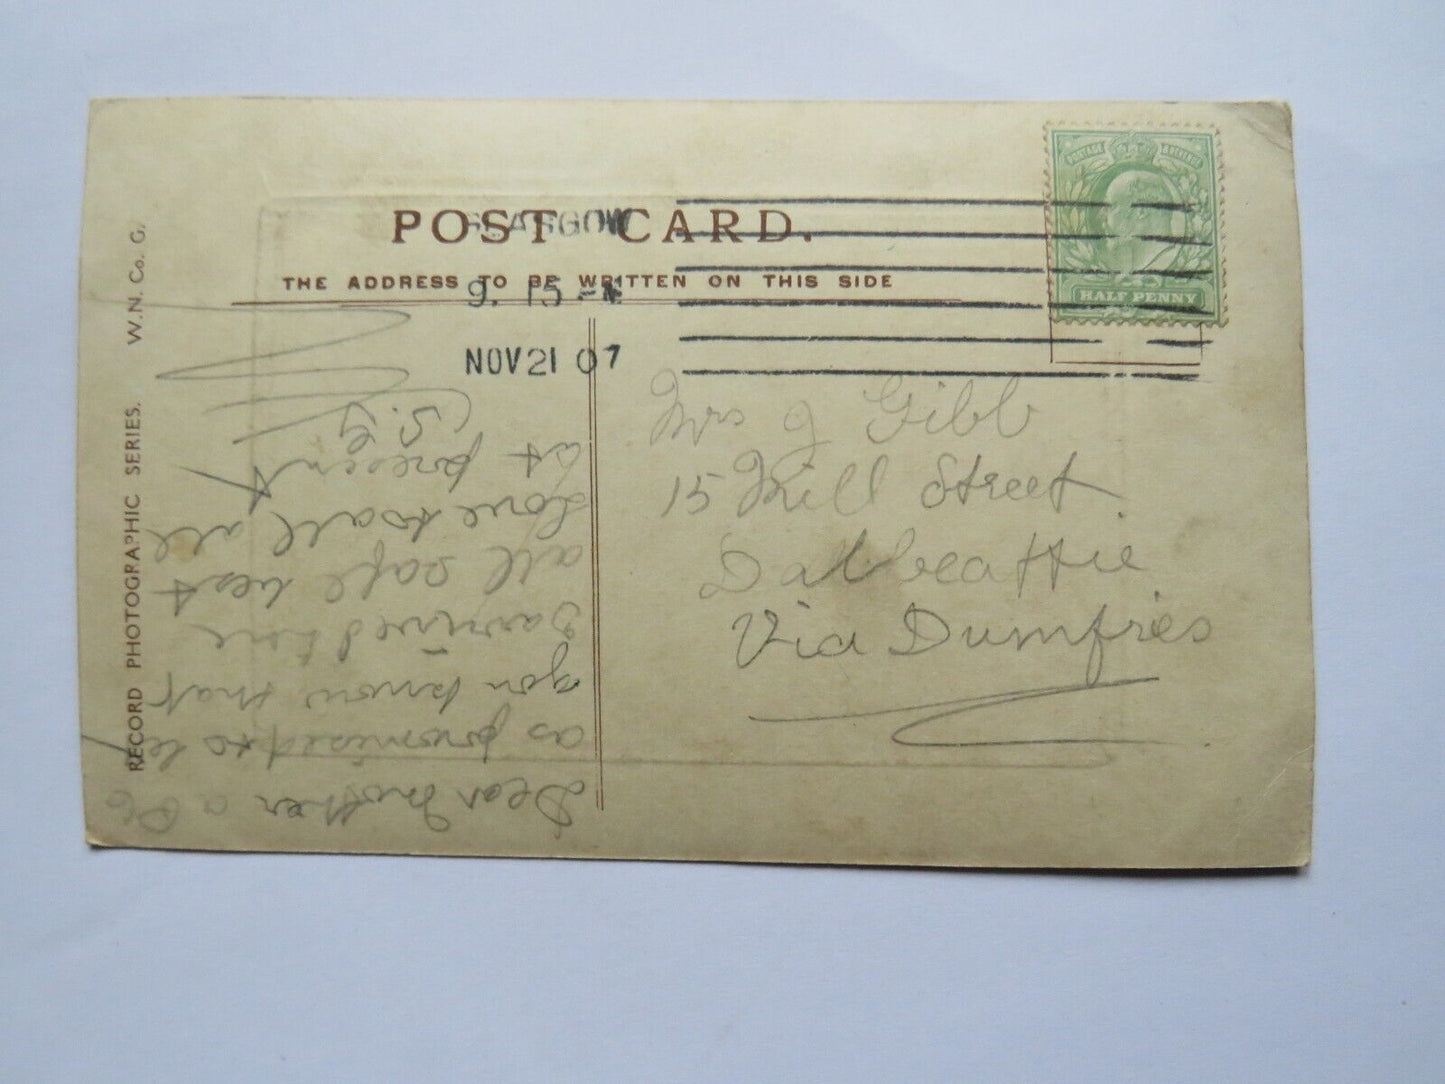 POST CARD.
THE ADDRESS TO BE WRITTEN ON THIS SIDE
GLASGOW
9. 15
NOV 21 07
POSTAGE & REVENUE
HALF PENNY
RECORD PHOTOGRAPHIC SERIES. W.N. Co. G.
Mrs J Gibb
15 Mill Street
Dalbeattie
Via Dumfries
Dear Mother a PC
as promised to let
you know that
I arrived here
all safe best
Love to all all
at present
(S.G